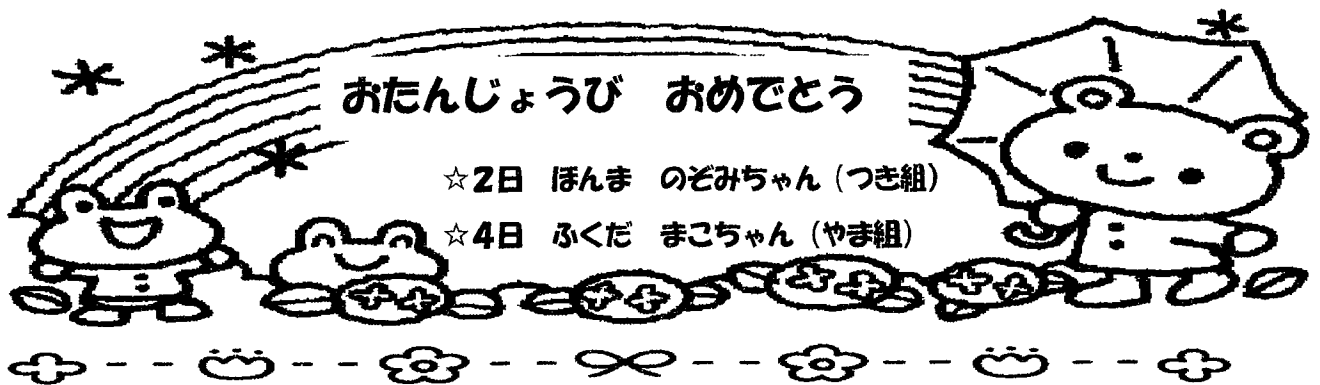 おたんじょうび　おめでとう
☆2日　ほんま　のぞみちゃん（つき組）
☆4日　ふくだ　まこちゃん（やま組）